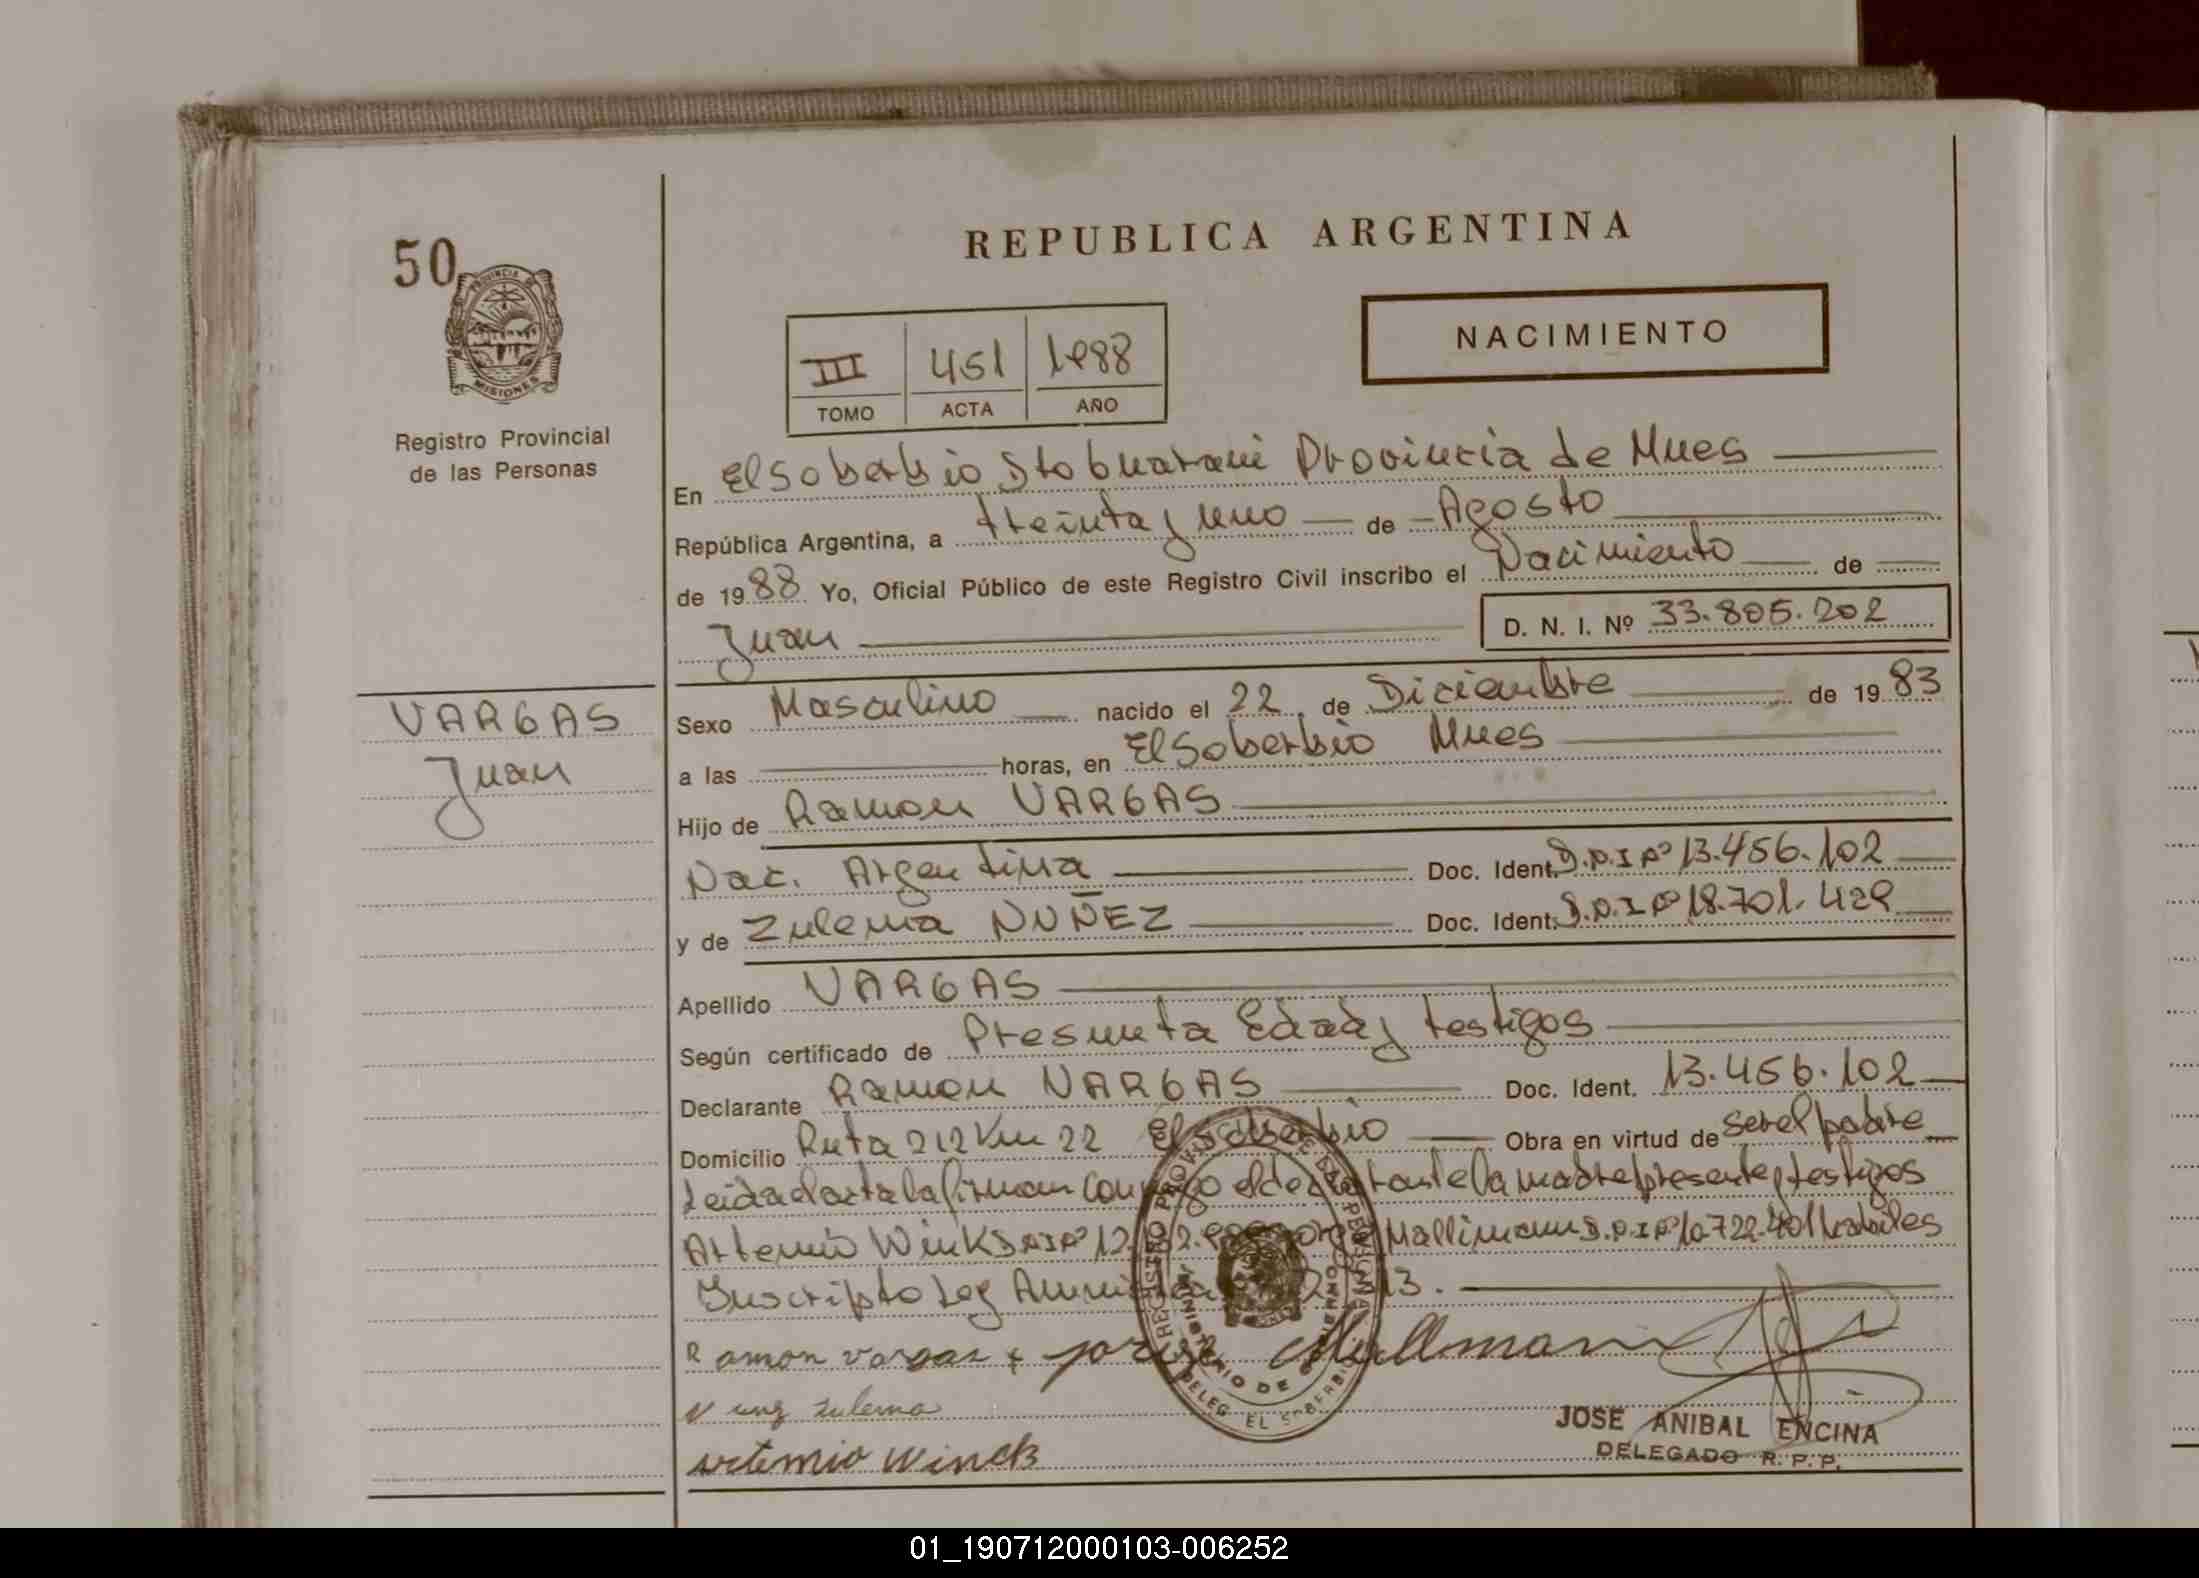 50
PROVINCIA DE
MISIONES
Registro Provincial
de las Personas
REPUBLICA ARGENTINA
NACIMIENTO
III 451 1988
TOMO ACTA AÑO
En El Soberbio Dto Guarani Provincia de Mnes
República Argentina, a treinta y uno de Agosto
de 1988 Yo, Oficial Público de este Registro Civil inscribo el Nacimiento de
Juan D. N. I. Nº 33.805.202
VARGAS
Juan
Sexo Masculino nacido el 22 de Diciembre de 1983
a las horas, en El Soberbio Mnes
Hijo de Ramon VARGAS
Nac. Argentina Doc. Ident. D.N.I Nº 13.456.102
y de Zulema NUÑEZ Doc. Ident. D.N.I Nº 18.701.429
Apellido VARGAS
Según certificado de Presunta Edad y testigos
Declarante Ramon VARGAS Doc. Ident. 13.456.102
Domicilio Ruta 212 Km 22 El Soberbio Obra en virtud de ser el padre
Leida el acta la firman conmigo el declarante la madre presente y testigos
Artemio Wink D.N.I Nº 12. Mallimann D.N.I Nº 10.722.401 habiles
Inscripto Ley 13.
Ramon vargas jorge Mallmann
Nunez zulema
artemio Winck
REGISTRO PROVINCIAL DE LAS PERSONAS
MINISTERIO DE GOBIERNO
DELEG. EL SOBERBIO
JOSE ANIBAL ENCINA
DELEGADO R. P. P.
01_190712000103-006252